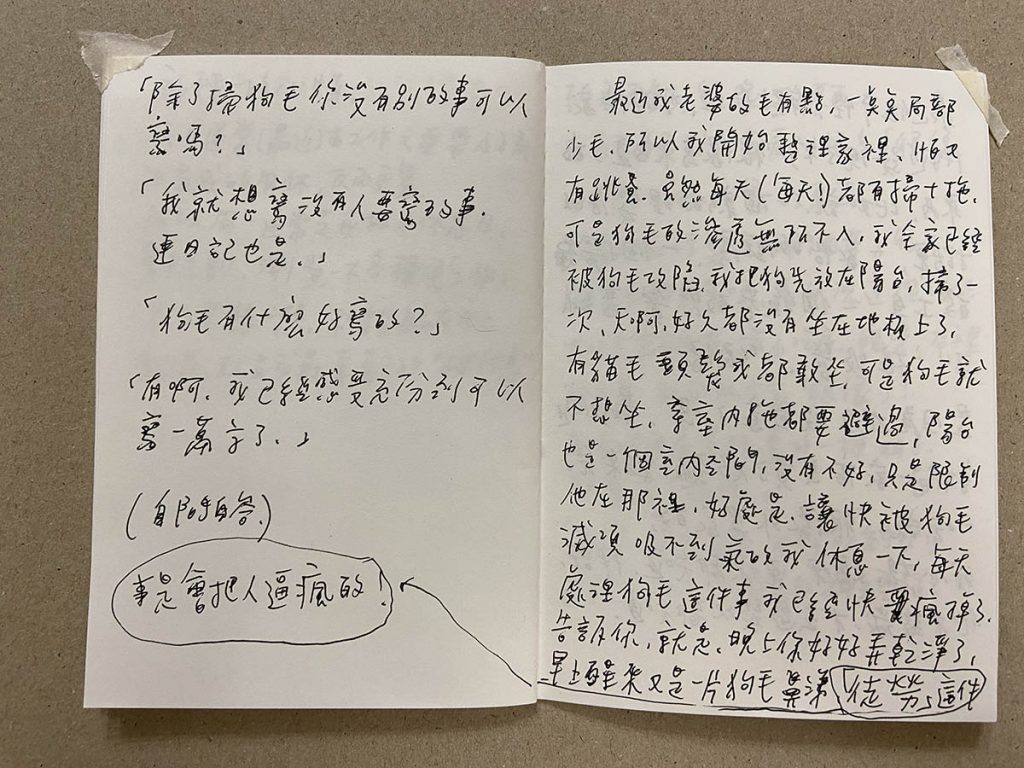 「除了掃狗毛你沒有別的事可以
寫嗎?」
「我就想寫沒有人要寫的事.
連日記也是.」
「狗毛有什麼好寫的?」
「有啊,我已經感受充份到可以
寫一萬字了.」
(自問自答.)
事是會把人逼瘋的!
最近我老婆的毛有點一莫莫局部
少毛.所以我開始整理家裡、怕又
有跳蚤.虽然每天(每天!)都有掃+拖,
可是狗毛的滲透無所不入,我全家已經
被狗毛攻陷,我把狗先放在陽台,掃了一
次,天啊,好久都沒有坐在地板上了,
有貓毛頭髮我都敢坐,可是狗毛就
不想坐,室內拖都要避過,陽台
也是一個室內空間,沒有不好,只是限制
他在那裡,好處是,讓快被狗毛
滅頂吸不到氣的我休息一下,每天
處理狗毛這件事我已經快要瘋掉了.
告訴你,就是,晚上你好好弄乾淨了,
早上醒來又是一片狗毛「徒勞」這件